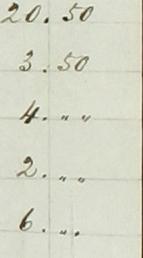 20. 50
3. 50
4. " "
2. " "
6. " "